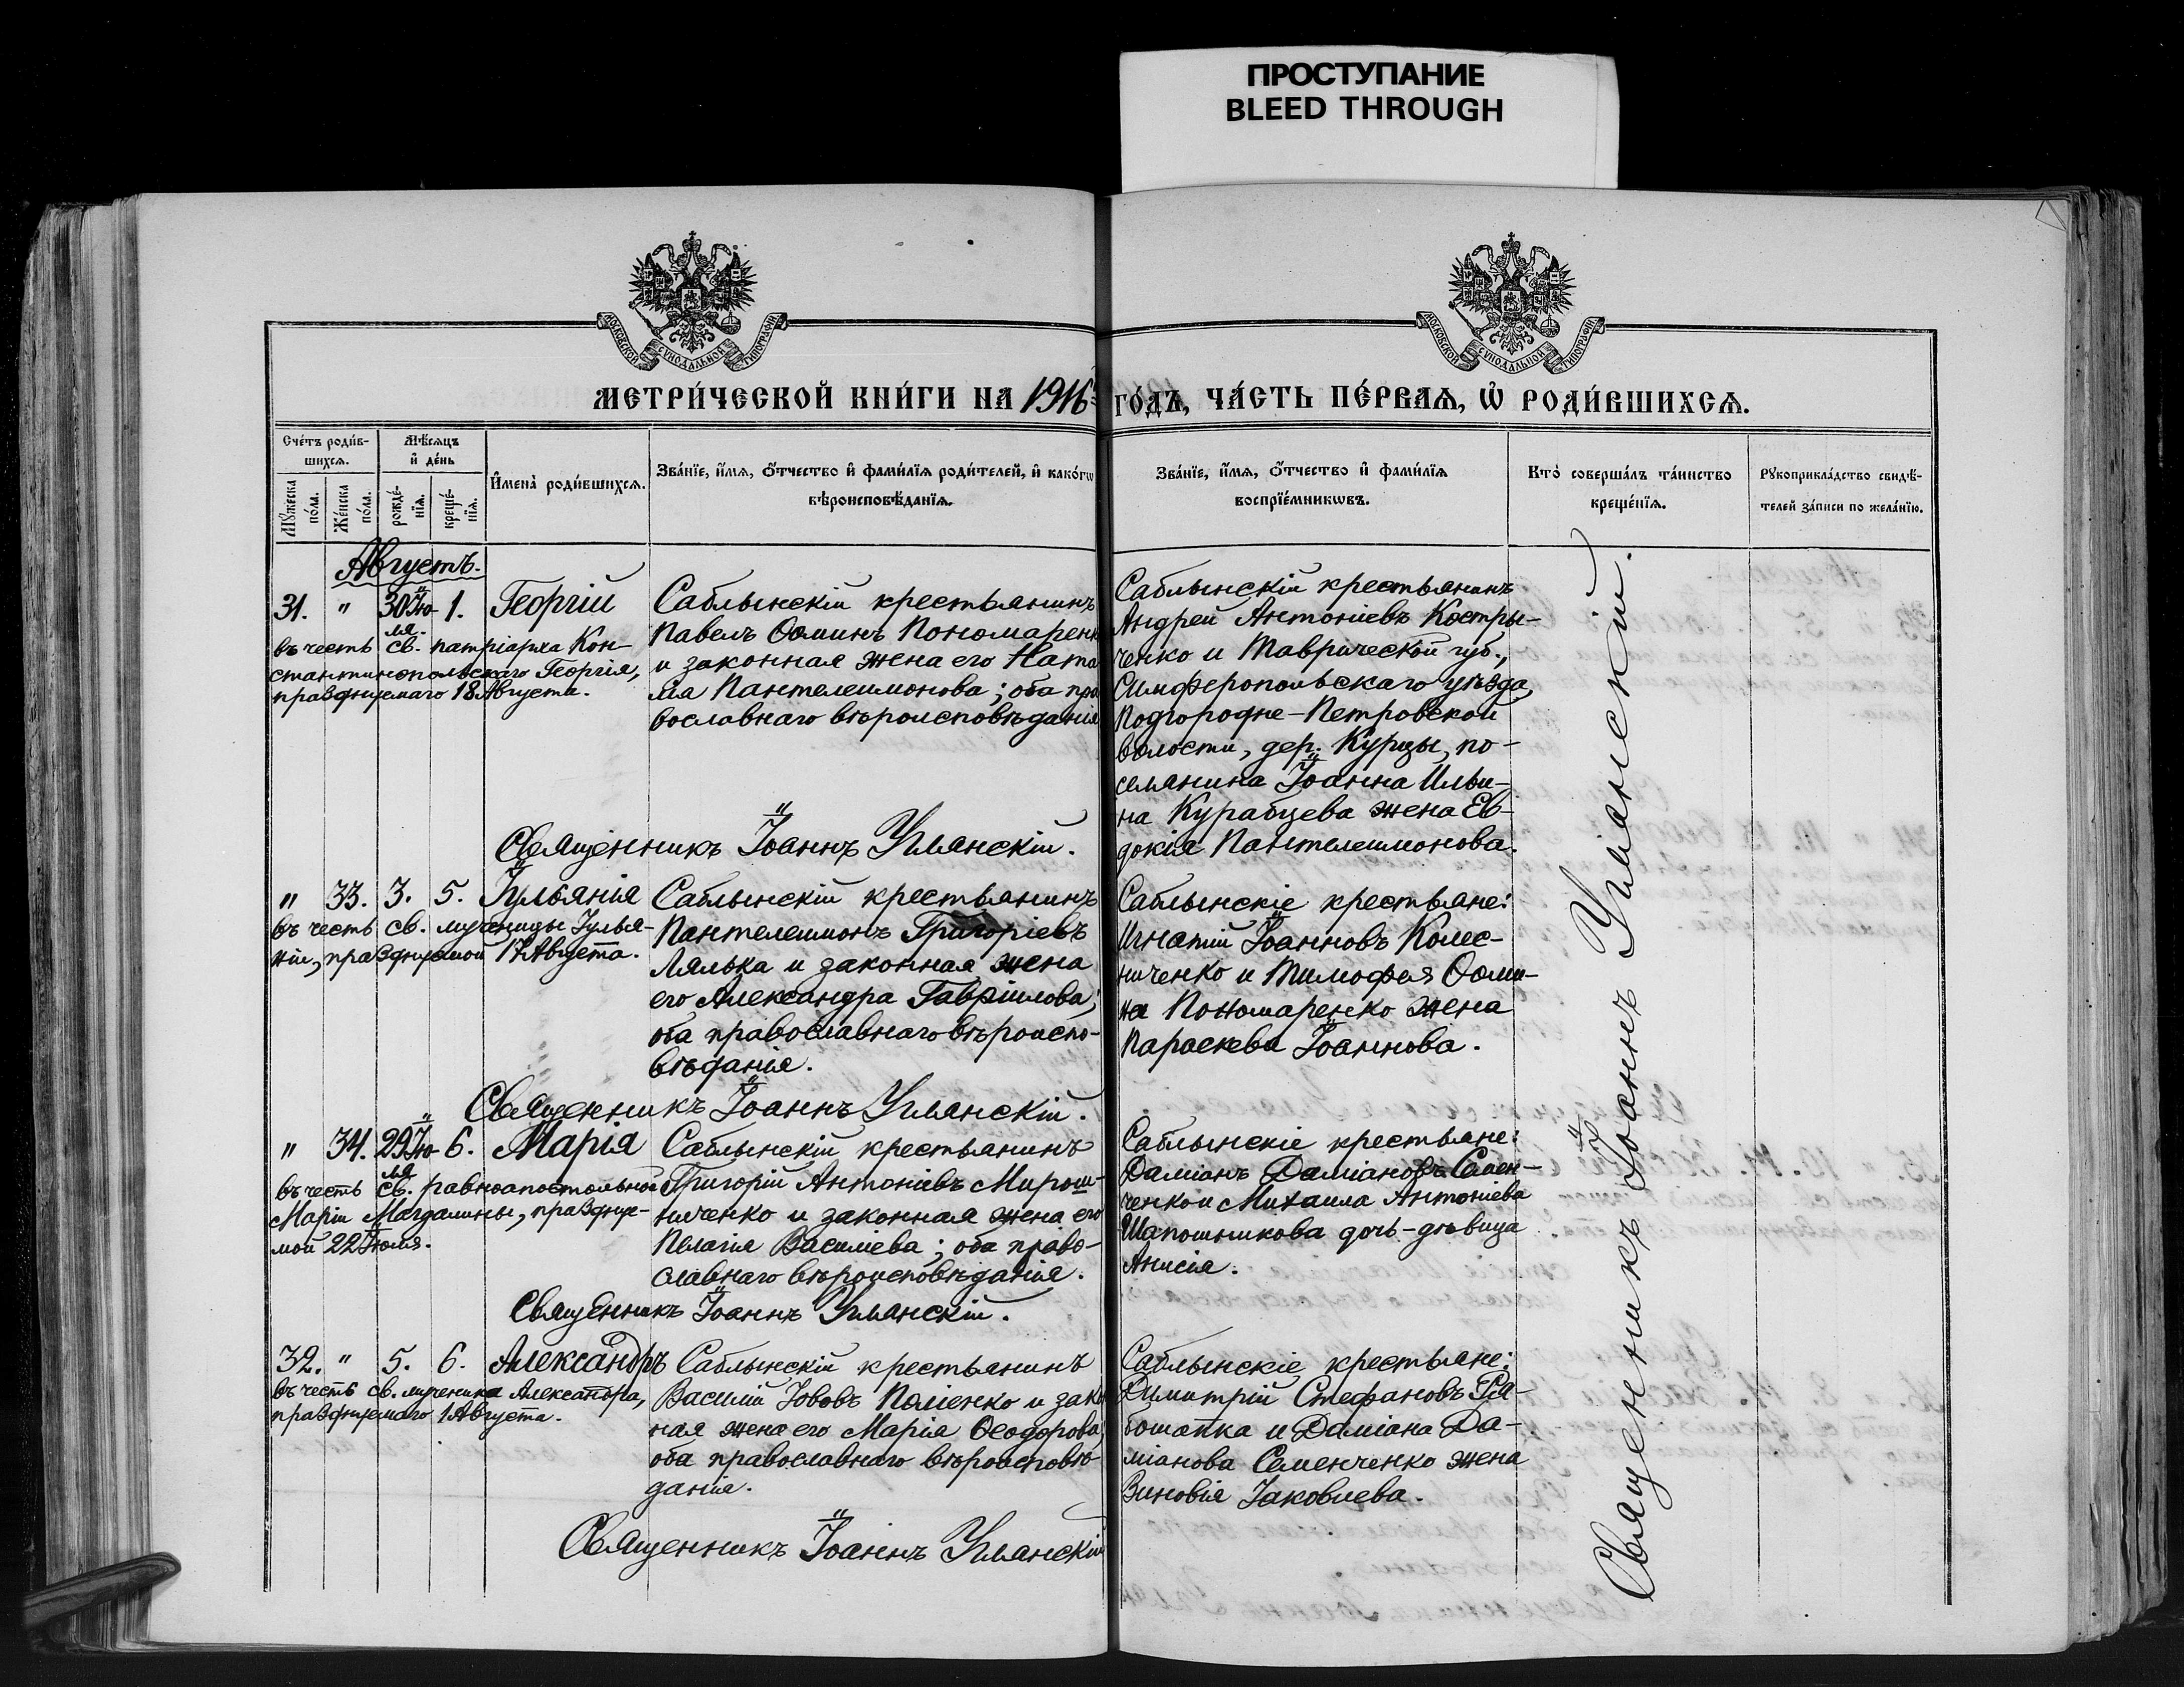 ПРОСТУПАНИЕ
BLEED THROUGH
МОСКОВСКОЙ СѴНОДАЛЬНОЙ ТИПОГРАФІИ
МОСКОВСКОЙ СѴНОДАЛЬНОЙ ТИПОГРАФІИ
МЕТРИ́ЧЕСКОЙ КНИ́ГИ НА 1916 ГО́ДЪ, ЧА́СТЬ ПЕ́РВАѦ, Ѡ҆ РОДИ́ВШИХСѦ.
Сче́тъ роди́в-
шихсѧ.
Мꙋ́жеска
по́ла.
Же́нска
по́ла.
Мѣ́сѧцъ
и҆ де́нь
рожде́-
нїѧ.
креще́-
нїѧ.
И҆мена̀ роди́вшихсѧ.
Зва́нїе, и҆́мѧ, ѻ҆́тчество и҆ фами́лїѧ роди́телей, и҆ како́гѡ
вѣроисповѣ́данїѧ.
Зва́нїе, и҆́мѧ, ѻ҆́тчество и҆ фами́лїѧ
воспрїе́мникѡвъ.
Кто̀ соверша́лъ та́инство
креще́нїѧ.
Рꙋкоприкла́дство свидѣ́-
телей за́писи по жела́нїю.
Августъ.
31. " 30 Ію- 1. Георгій
ля.
въ честь св. патріарха Кон-
стантинопольскаго Георгія,
празднуемаго 18 Августа.
Саблынскій крестьянинъ
Павелъ Ѳоминъ Пономаренк
и законная жена его Ната
лія Пантелеимонова; оба пра
вославнаго вѣроисповѣданія
Саблынскій крестьянинъ
Андрей Антоніевъ Костры-
ченко и Таврической губ.,
Симферопольскаго уѣзда,
Подгородне-Петровской
волости, дер. Курцы, по-
селянина Іоанна Ильи-
на Курабцева жена Ев-
докія Пантелеимонова.
Священникъ Іоаннъ Уманскій.
" 33. 3. 5. Іульянія
въ честь св. мученицы Іулья-
ніи, празднуемой 17 Августа.
Саблынскій крестьянинъ
Пантелеимонъ Григоріевъ
Лялька и законная жена
его Александра Гавріилова;
оба православнаго вѣроиспо-
вѣданія.
Саблынскіе крестьяне:
Игнатій Іоанновъ Колес-
ниченко и Тимофея Ѳоми-
на Пономаренко жена
Параскева Іоаннова.
Священникъ Іоаннъ Уманскій.
" 34. 29 Ію- 6. Марія
ля
въ честь св. равноапостольной
Маріи Магдалины, праздну-
мой 22 Іюля.
Саблынскій крестьянинъ
Григорій Антоніевъ Мирош-
ниченко и законная жена его
Пелагія Василіева; оба право-
славнаго вѣроисповѣданія.
Саблынскіе крестьяне:
Даміанъ Даміановъ Семен-
ченко и Михаила Антоніева
Шапошникова дочь-дѣвица
Анисія.
Священникъ Іоаннъ Уманскій.
32. " 5. 6. Александръ
въ честь св. мученика Александра,
празднуемаго 1 Августа.
Саблынскій крестьянинъ
Василій Іововъ Поліенко и зако
ная жена его Марія Ѳеодорова,
оба православнаго вѣроисповѣ-
данія.
Саблынскіе крестьяне:
Димитрій Стефановъ Ря-
бошапка и Даміана Да-
міанова Семенченко жена
Зиновія Іаковлева.
Священникъ Іоаннъ Уманскій
Священникъ Іоаннъ Уманскій.